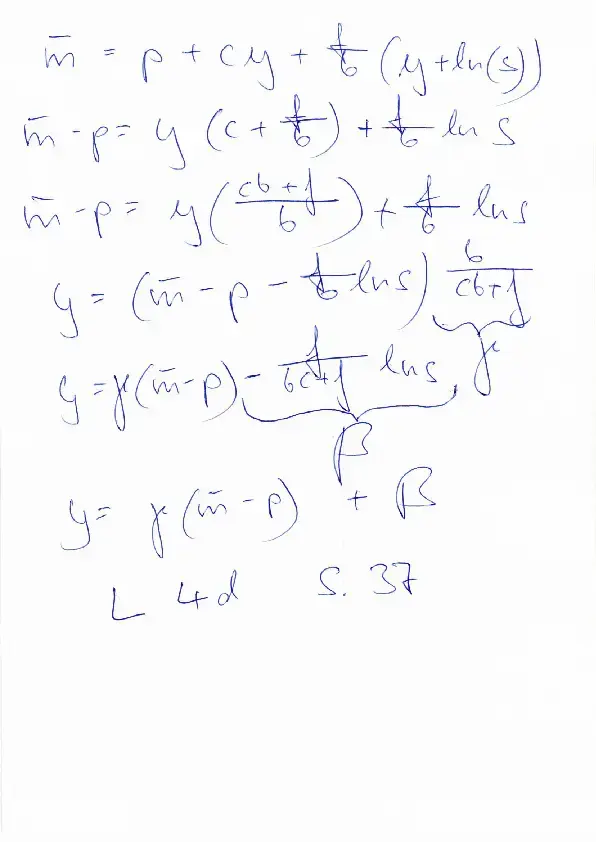 m̄ = p + cy + f/b (y + ln(s))
m̄ - p = y (c + f/b) + f/b ln s
m̄ - p = y ((cb + f)/b) + f/b ln s
y = (m̄ - p - f/b ln s) b/(cb + f)
y = γ(m̄ - p) - f/(bc + f) ln s, γ
β
y = γ (m̄ - p) + β
L 4d S. 37